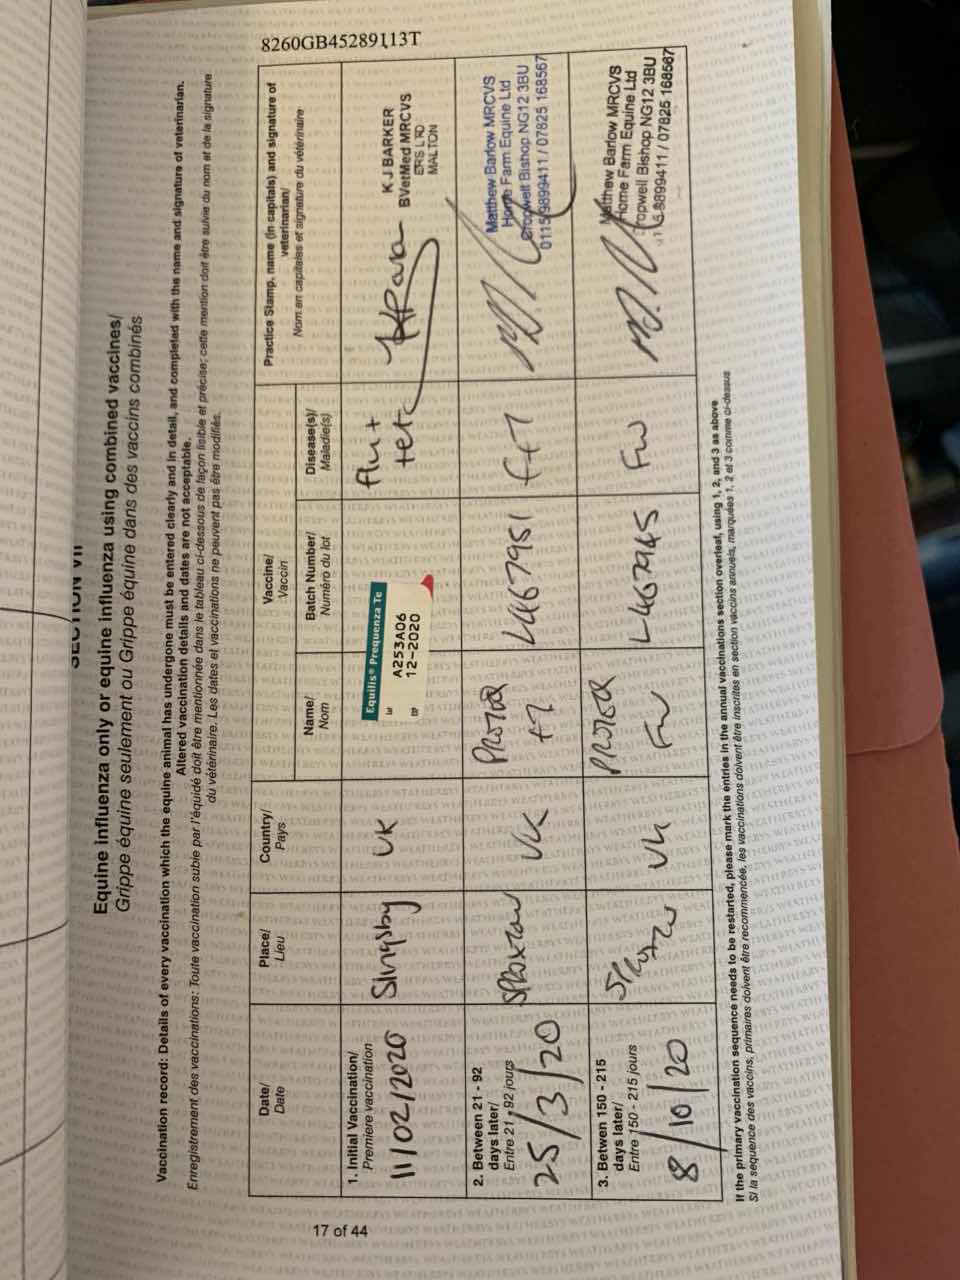 8260GB45289113T
SECTION VII
Equine influenza only or equine influenza using combined vaccines/
Grippe équine seulement ou Grippe équine dans des vaccins combinés
Vaccination record: Details of every vaccination which the equine animal has undergone must be entered clearly and in detail, and completed with the name and signature of veterinarian.
Altered vaccination details and dates are not acceptable.
Enregistrement des vaccinations: Toute vaccination subie par l'équidé doit être mentionnée dans le tableau ci-dessous de façon lisible et précise; cette mention doit être suivie du nom et de la signature
du vétérinaire. Les dates et vaccinations ne peuvent pas être modifiés.
Date/
Date
Place/
Lieu
Country/
Pays
Vaccine/
Vaccin
Name/
Nom
Batch Number/
Numéro du lot
Disease(s)/
Maladie(s)
Practice Stamp, name (in capitals) and signature of
veterinarian/
Nom en capitales et signature du vétérinaire
1. Initial Vaccination/
Premiere vaccination
11/02/2020
Slingsby
UK
Equilis® Prequenza Te
A253A06
12-2020
flu +
tet
K J BARKER
BVetMed MRCVS
ERS LTD
MALTON
2. Between 21 - 92
days later/
Entre 21, 92 jours
25/3/20
Sproxton
UK
PROTEQ
FT
L467951
F+T
Matthew Barlow MRCVS
Home Farm Equine Ltd
Cropwell Bishop NG12 3BU
0115 9899411 / 07825 168567
3. Betwen 150 - 215
days later/
Entre 150 - 215 jours
8/10/20
UK
PROTEQ
L467945
Matthew Barlow MRCVS
Home Farm Equine Ltd
Cropwell Bishop NG12 3BU
9899411 / 07825 168567
If the primary vaccination sequence needs to be restarted, please mark the entries in the annual vaccinations section overleaf, using 1, 2, and 3 as above
Si la sequence des vaccins, primaires doivent être recommencée, les vaccinations doivent être inscrites en section vaccins annuels, marquées 1, 2 et 3 comme ci-dessus
17 of 44